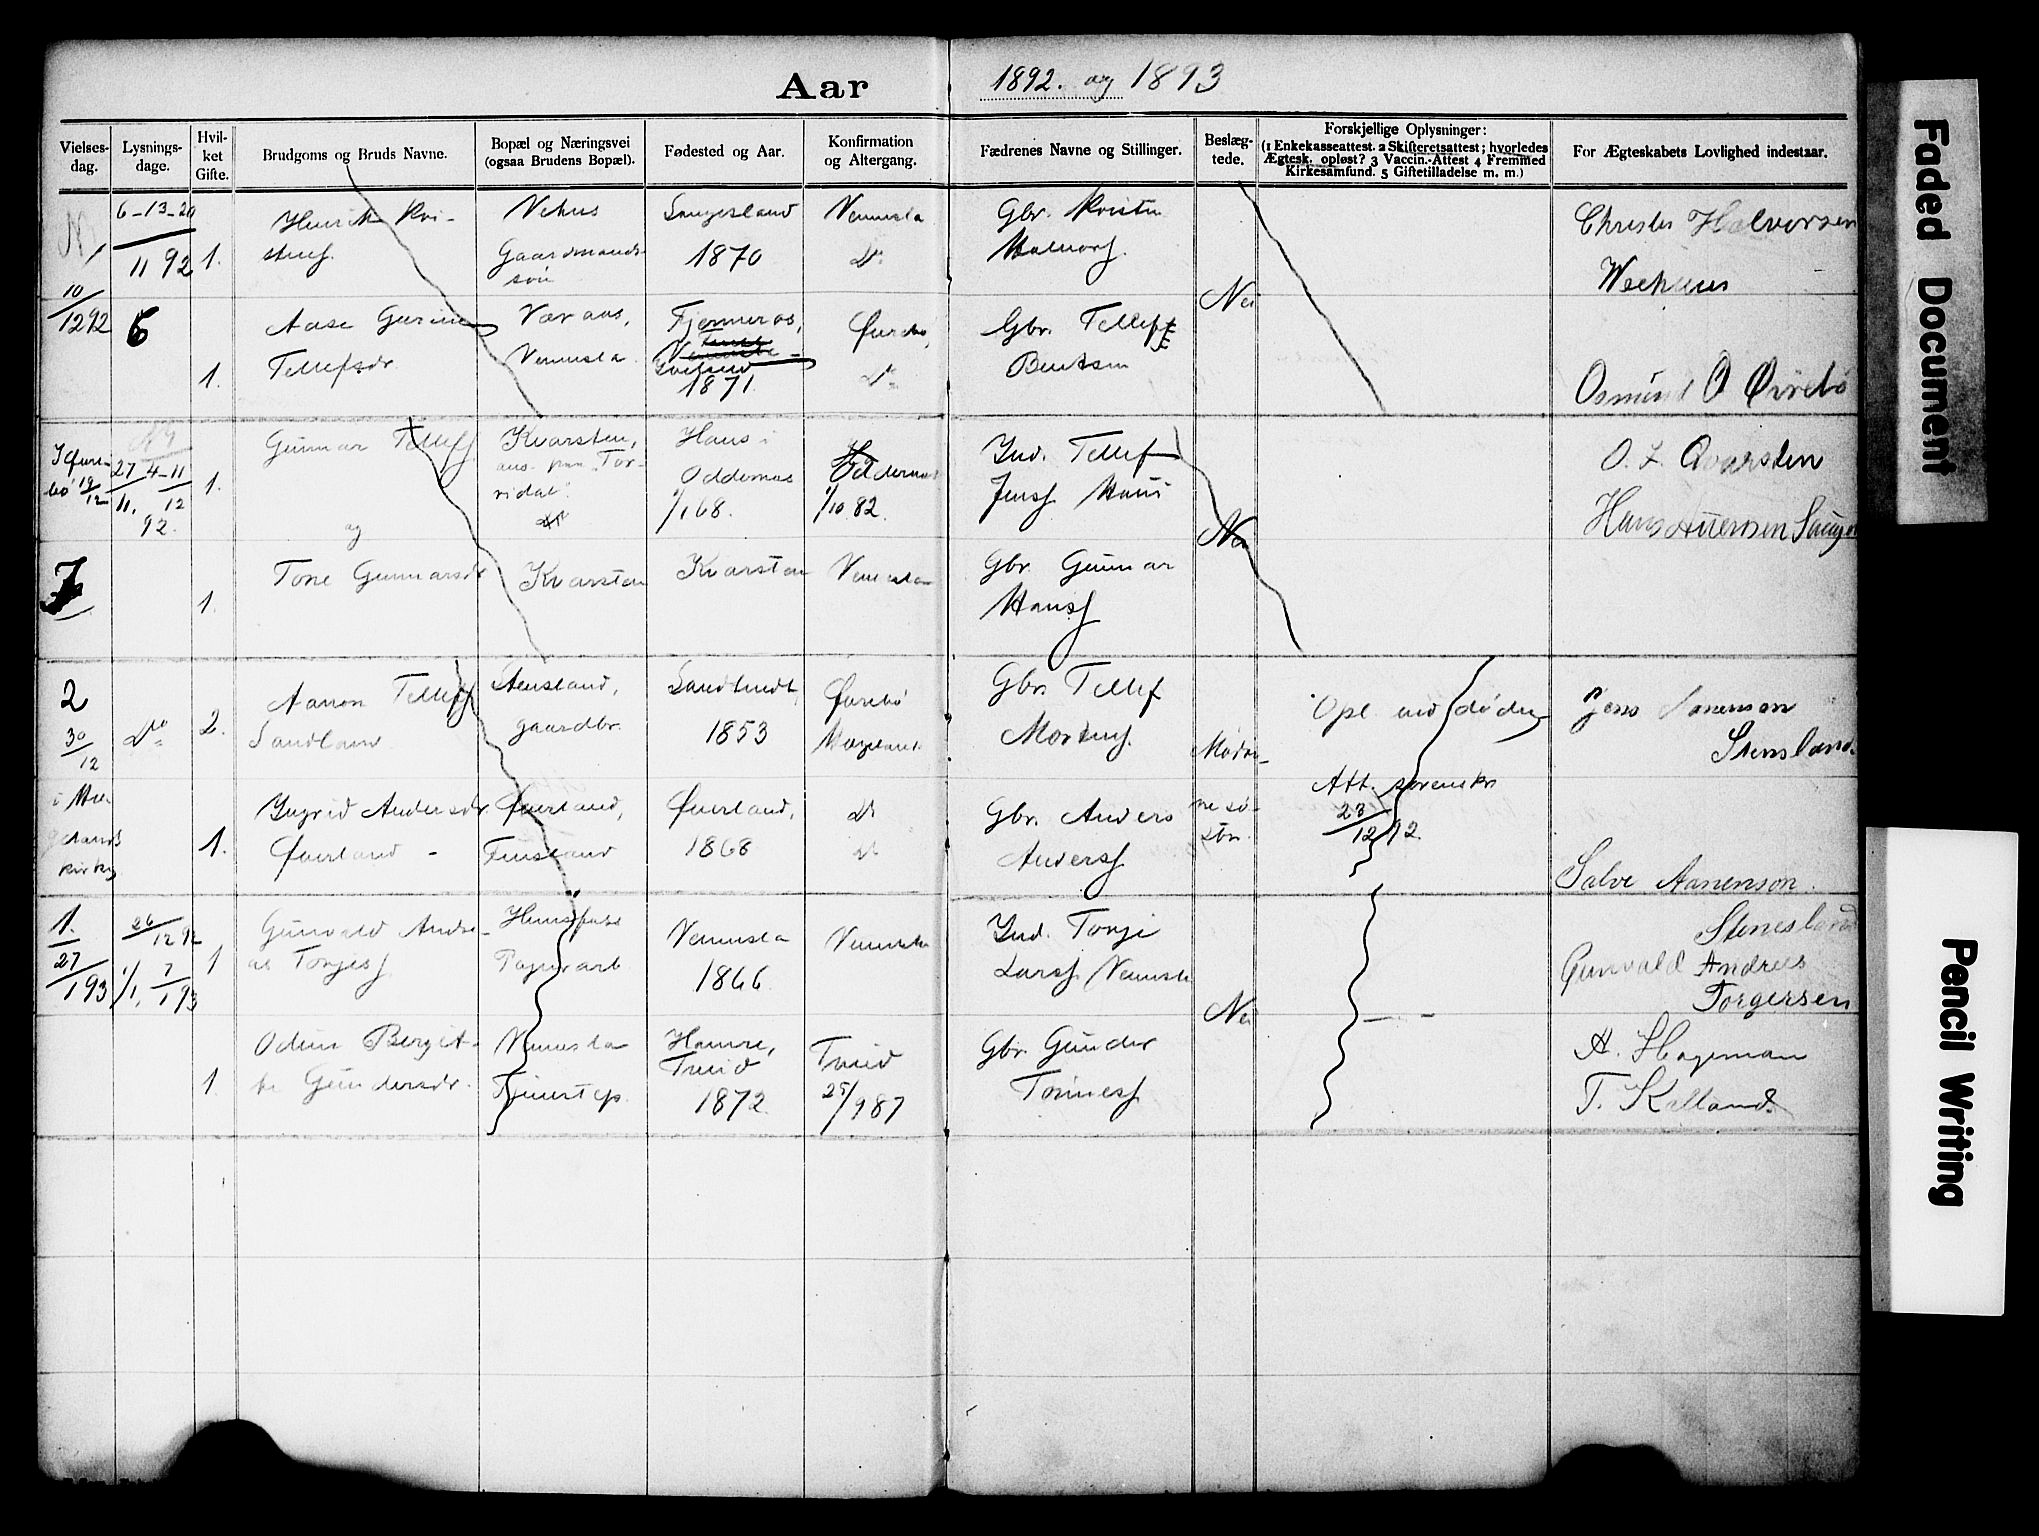 Aar
1892. og 1893
Vielses-
dag.
Lysnings-
dage.
Hvil-
ket
Gifte.
Brudgoms og Bruds Navne.
Bopæl og Næringsvei
(ogsaa Brudens Bopæl).
Fødested og Aar.
Konfirmation
og Altergang.
Fædrenes Navne og Stillinger.
Beslæg-
tede.
Forskjellige Oplysninger:
(1 Enkekasseattest. 2 Skifteretsattest; hvorledes
Ægtesk. opløst? 3 Vaccin.-Attest 4 Fremmed
Kirkesamfund. 5 Giftetilladelse m. m.)
For Ægteskabets Lovlighed indestaar.
10/12 92
6
6-13-20
11 92
1.
Henrik Kri-
stensf.
Vehus
Gaardmands-
søn
1870
Vennesla
Do
Gbr. Kristen
Halvors.
Nei
Christen Halvorsen
Weehuus
1.
Aase Gurine
Tellefsdr
Væraas,
Vennesla
1871.
Øvrebø,
Do
Gbr. Tellef
Bentsen
Osmund O Øvrebø
19/12
7
27 4-11
11. 12
92.
1.
Gunnar Tellefs
og
Kvarsten,
ans. paa Tor-
ridal.
Haus i
Oddernes
1/1 68.
Oddernes
1/10 82.
Ind. Tellef
Jensf Haus
Nei
O. L. Qvarsten
1.
Tone Gunnarsdr
Kvarsten
Kvarsten
Vennesla
Gbr. Gunnar
Hansf
2
30/12
Do
2.
Aanon Tellefs
Sandland
Stensland,
gaardbr.
1853
Øvrebø
Hægeland
Gbr. Tellef
Mortensf.
Moder-
Opl. ved døden
Jens Aanenson
Stensland
i Hæ-
gelands
kirke
1.
Ingrid Andersdr
Øverland
Øverland,
Finsland
Øverland,
1868
Do
Do
Gbr. Anders
Andersf
ne sø-
ster.
Att. sorenskr
23/12 92.
Salve Aanenson.
Stensland
1.
27/1 93
26/12 92
1/1, 7/1 93
1
Gunvald Andre-
as Torjesf
Hunsfoss
Papirarb.
Vennesla
1866.
Vennesla
Ind. Torje
Larsf Vennesla
Nei
Gunvald Andrees
Torgersen
1.
Odine Bergit-
te Gundersdr.
Vennesla
Hamre,
Tveid
1872.
Tveid
25/9 87
Gbr. Gunder
Tønnesf
A. Hageman
T. Kalland.
Faded Document
Pencil Writing